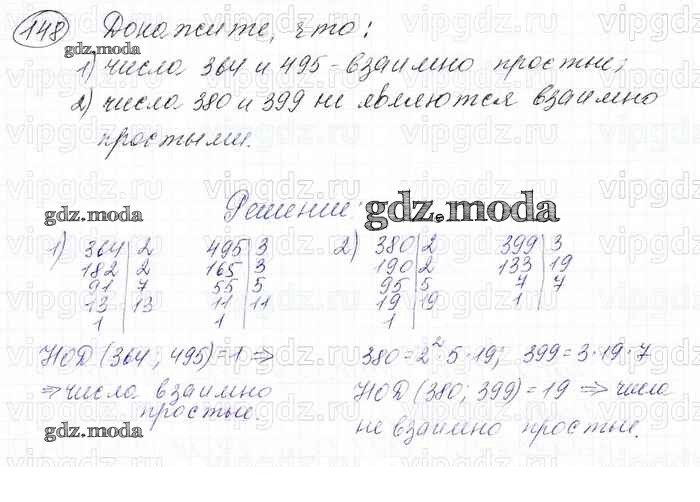 148 Докажите, что:
gdz.moda
1) числа 364 и 495 - взаимно простые;
2) числа 380 и 399 не являются взаимно
простыми.
Решение:
gdz.moda
gdz.moda
1) 364 | 2 495 | 3 2) 380 | 2 399 | 3
182 | 2 165 | 3 190 | 2 133 | 19
91 | 7 55 | 5 95 | 5 7 | 7
13 | 13 11 | 11 19 | 19 1
1 1 1
НОД (364; 495) = 1 ⇒ 380 = 2²·5·19; 399 = 3·19·7
⇒ числа взаимно НОД (380; 399) = 19 ⇒ числа
простые. не взаимно простые.
gdz.moda
vipgdz.ru